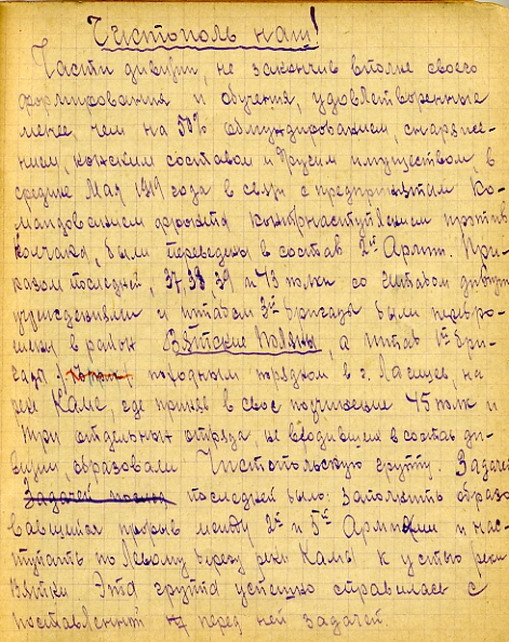 Чистополь наш!
Части дивизии, не закончив вполне своего
формирования и обучения, удовлетворенные
менее, чем на 50% обмундированием, снаряже-
нием, конским составом и другим имуществом, в
средине Мая 1919 года в связи с предпринятым Ко-
мандованием фронта контрнаступлением против
Колчака, были переведены в состав 2й Армии. При-
казом последней, 37, 38, 39 и 43 полки со штабом дивизии
учреждениями и штабом 3й бригады были перебро-
шены в район Вятские Поляны, а штаб 1й бри-
гады походным порядком в г. Лаишев, на
реке Каме, где приняв в свое подчинение 45 полк и
три отдельных отряда, не входивших в состав ди-
визии, образовали Чистопольскую группу. Задачей
Задачей последней было: заполнить образо
вавшийся прорыв между 2й и 5й Армиями и нас-
тупать по Левому берегу реки Камы к устью реки
Вятки. Эта группа успешно справилась с
поставленной перед ней задачей.